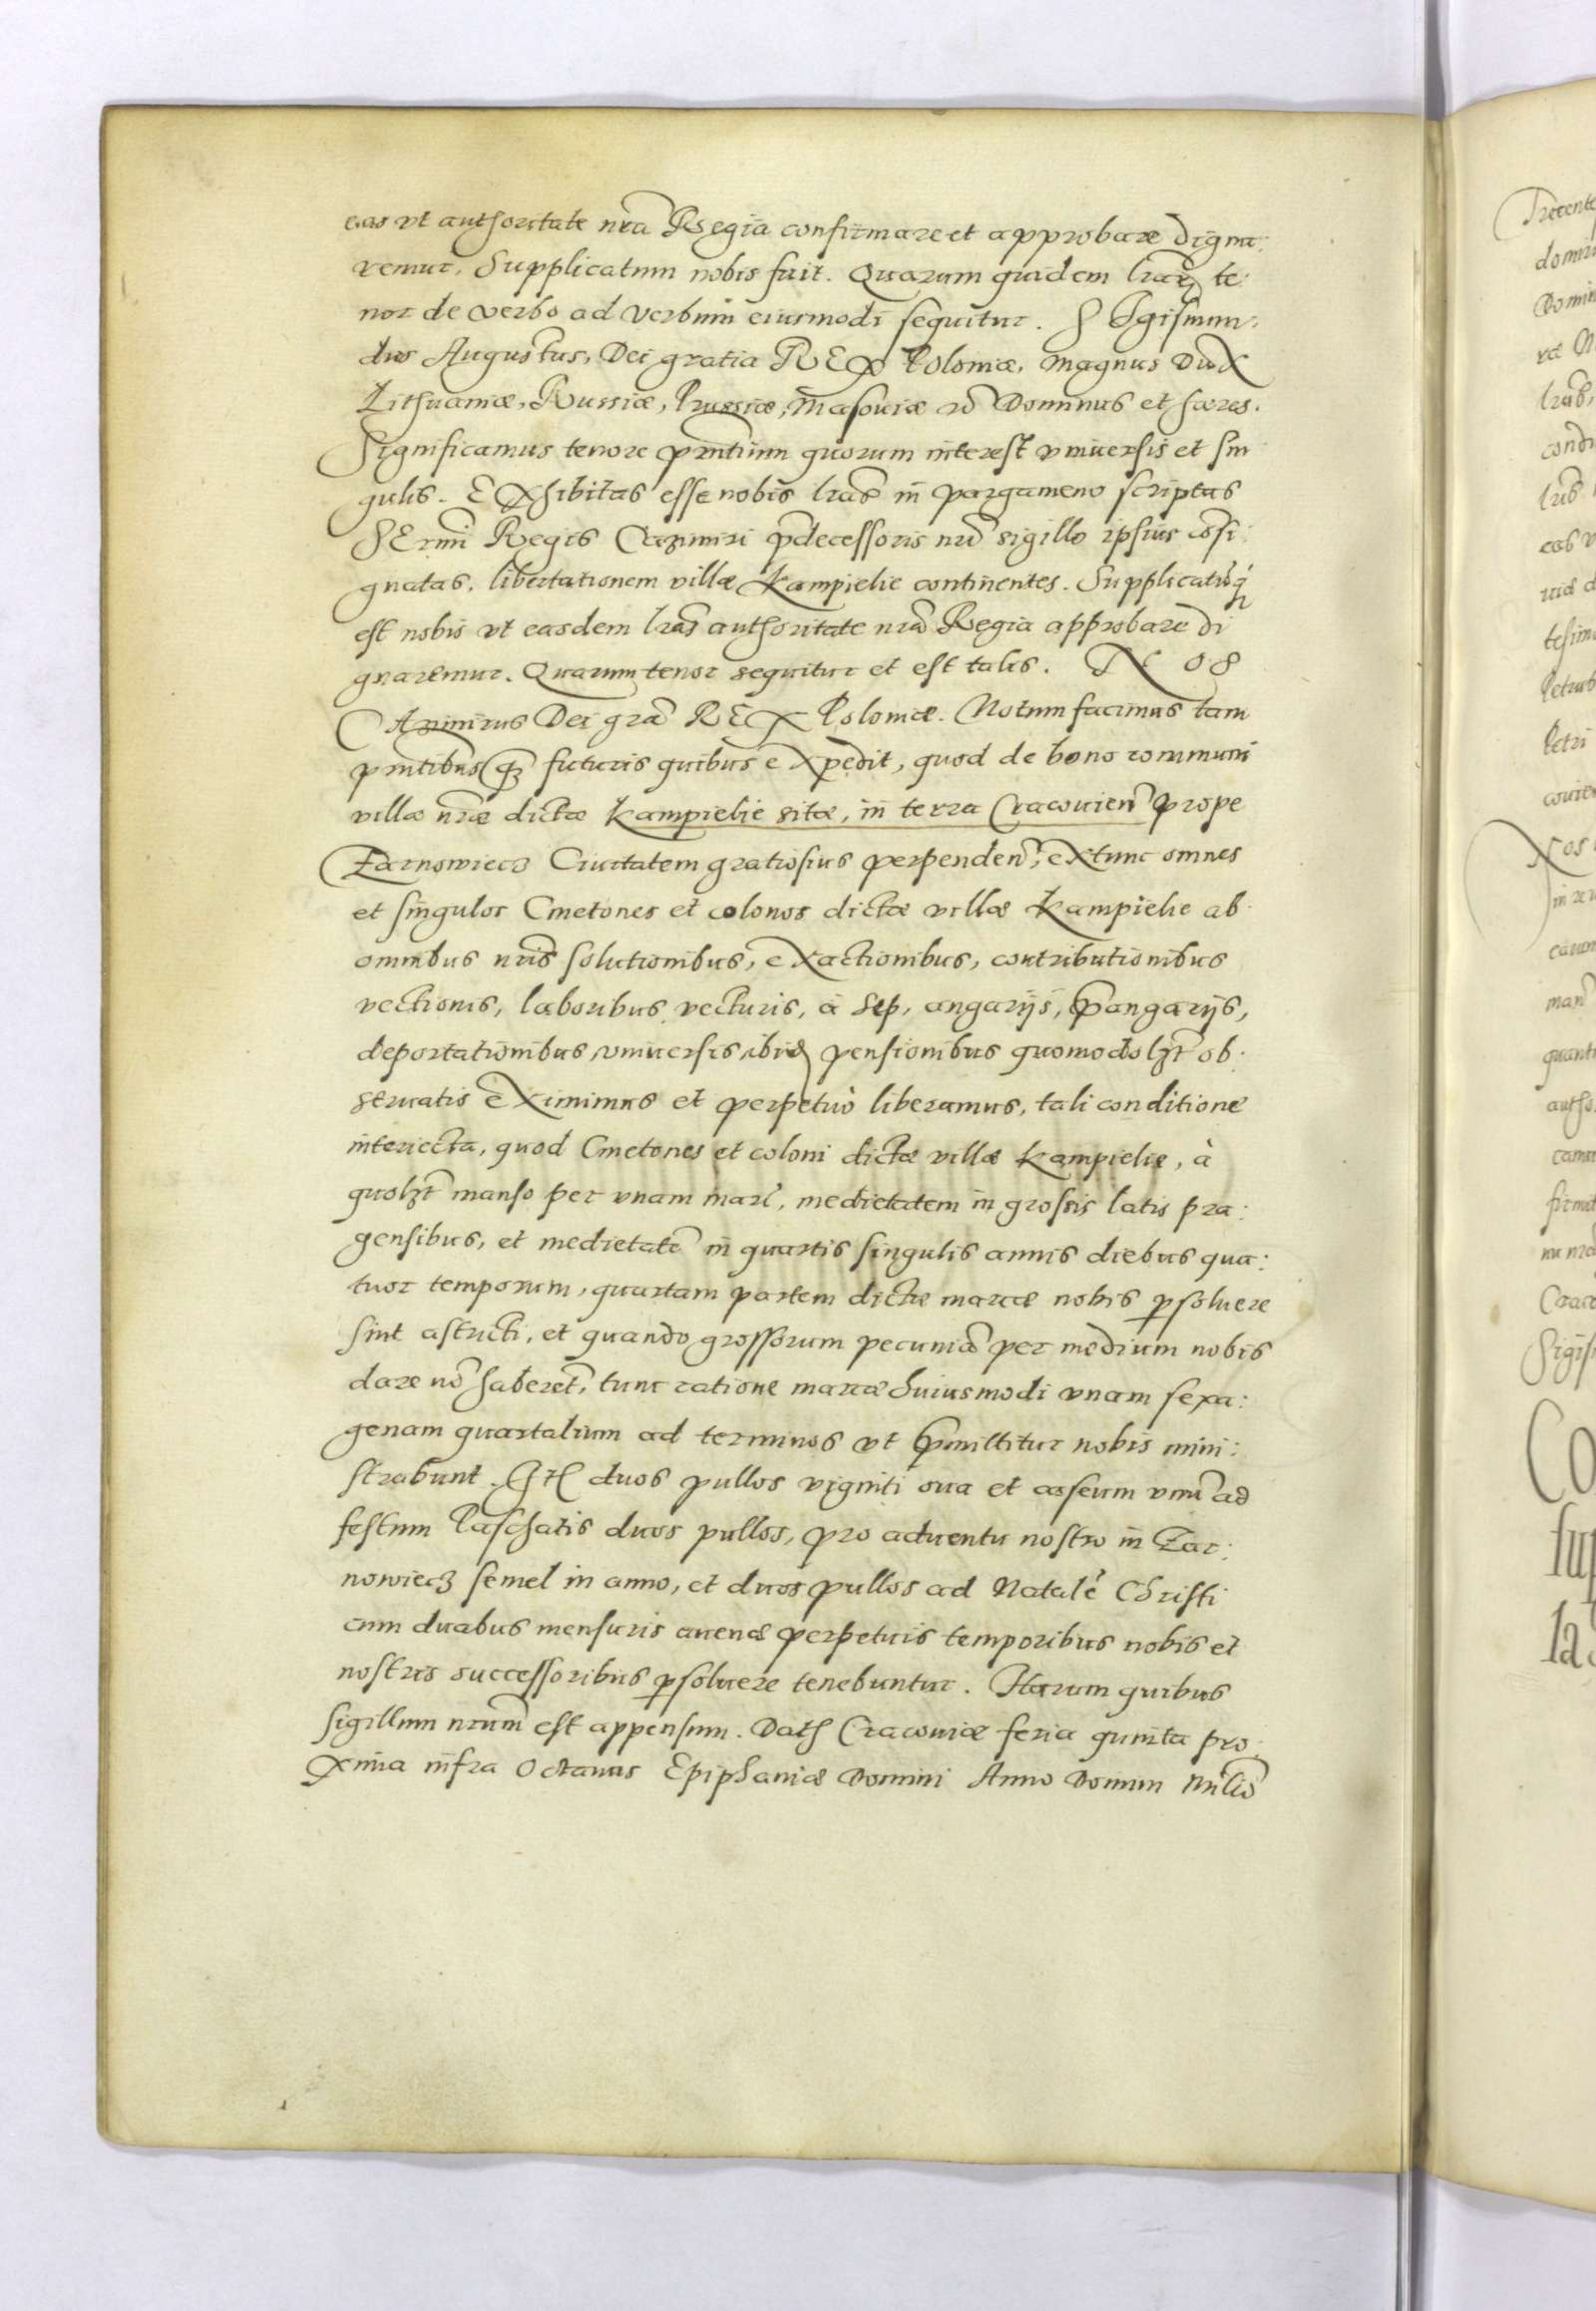 eas vt authoritate nrã Regia confirmare et approbare digna:
remur, Supplicatum nobis fuit. Quarum quidem lrarũ te:
nor de verbo ad verbum eiusmodi sequitur. SIgismun:
dus Augustus, Dei gratia REX Poloniæ, Magnus Dux
Lithuaniæ, Russiæ, Prussiæ, Masouiæ Dominus et hæres.
Significamus tenore pntium quorum interest vniuersis et sin
gulis. EXhibitas esse nobis lrãs in pargameno scriptas
SErmi Regis Cazimiri pdecessoris nri sigillo ipsius cõsi:
gnatas, libertationem villæ Kampielie continentes. Supplicatũq
est nobis vt easdem lrãs authoritate nrã Regia approbare di
gnaremur. Quarum tenor sequitur et est talis. NOS
CAzimirus Dei grã REX Poloniæ. Notum facimus tam
pntibus futuris quibus eXpedit, quod de bono communi
villæ nræ dictæ Kampielie sitæ, in terra Cracouien prope
Zarnowiecz Ciuitatem gratiosius perpenden, extunc omnes
et singulos Cmetones et colonos dictæ villæ Kampielie ab
omnibus nris solutionibus, eXactionibus, contributionibus
vectionis, laboribus vecturis, à sep, angarijs, pangarijs,
deportationibus vniuersis ibid pensionibus quomodolzt ob:
seruatis eXimimus et perpetuò liberamus, tali conditione
interiecta, quod Cmetones et coloni dictæ villæ Kampielie, à
quolzt manso per vnam marc, medietatem in grossis latis pra:
gensibus, et medietatẽ in quartis singulis annis diebus qua:
tuor temporum, quartam partem dictæ marcæ nobis psoluere
sint astricti, et quando grossorum pecuniã per medium nobis
dare nõ haberet, tunc ratione marcæ huiusmodi vnam sexa:
genam quartalium ad terminos vt pmittitur nobis mini:
strabunt. Itẽ duos pullos viginti oua et caseum vnũ ad
festum Paschatis duos pullos, pro aduentu nostro in Zar:
nowiecz semel in anno, et duos pullos ad Natale Christi
cum duabus mensuris auenæ perpetuis temporibus nobis et
nostris successoribus psoluere tenebuntur. Harum quibus
sigillum nrum est appensum. Dath Cracouiæ feria quinta pro:
xima infra Octauas Epiphaniæ Domini Anno Domini Mil̃lio